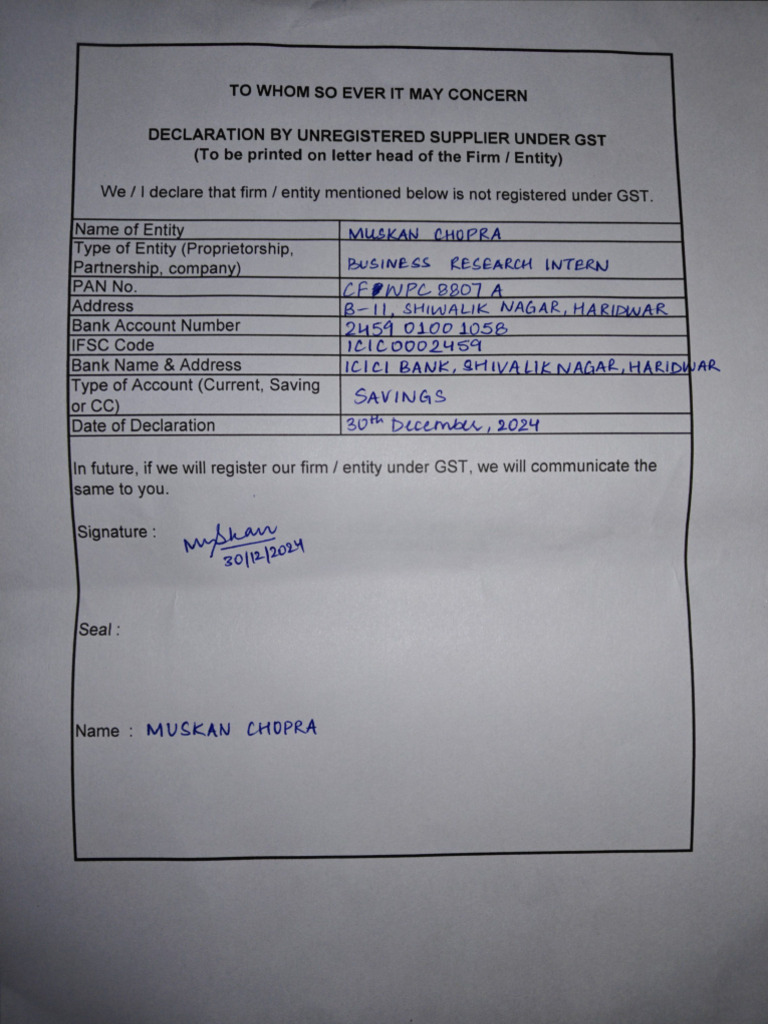 TO WHOM SO EVER IT MAY CONCERN
DECLARATION BY UNREGISTERED SUPPLIER UNDER GST
(To be printed on letter head of the Firm / Entity)
We / I declare that firm / entity mentioned below is not registered under GST.
Name of Entity MUSKAN CHOPRA
Type of Entity (Proprietorship,
Partnership, company) BUSINESS RESEARCH INTERN
PAN No.
Address B-11, SHIWALIK NAGAR, HARIDWAR
Bank Account Number 2459 0100 1058
IFSC Code ICIC0002459
Bank Name & Address ICICI BANK, SHIVALIK NAGAR, HARIDWAR
Type of Account (Current, Saving
or CC) SAVINGS
Date of Declaration 30th December, 2024
In future, if we will register our firm / entity under GST, we will communicate the
same to you.
Signature : Muskan
30/12/2024
Seal :
Name : MUSKAN CHOPRA